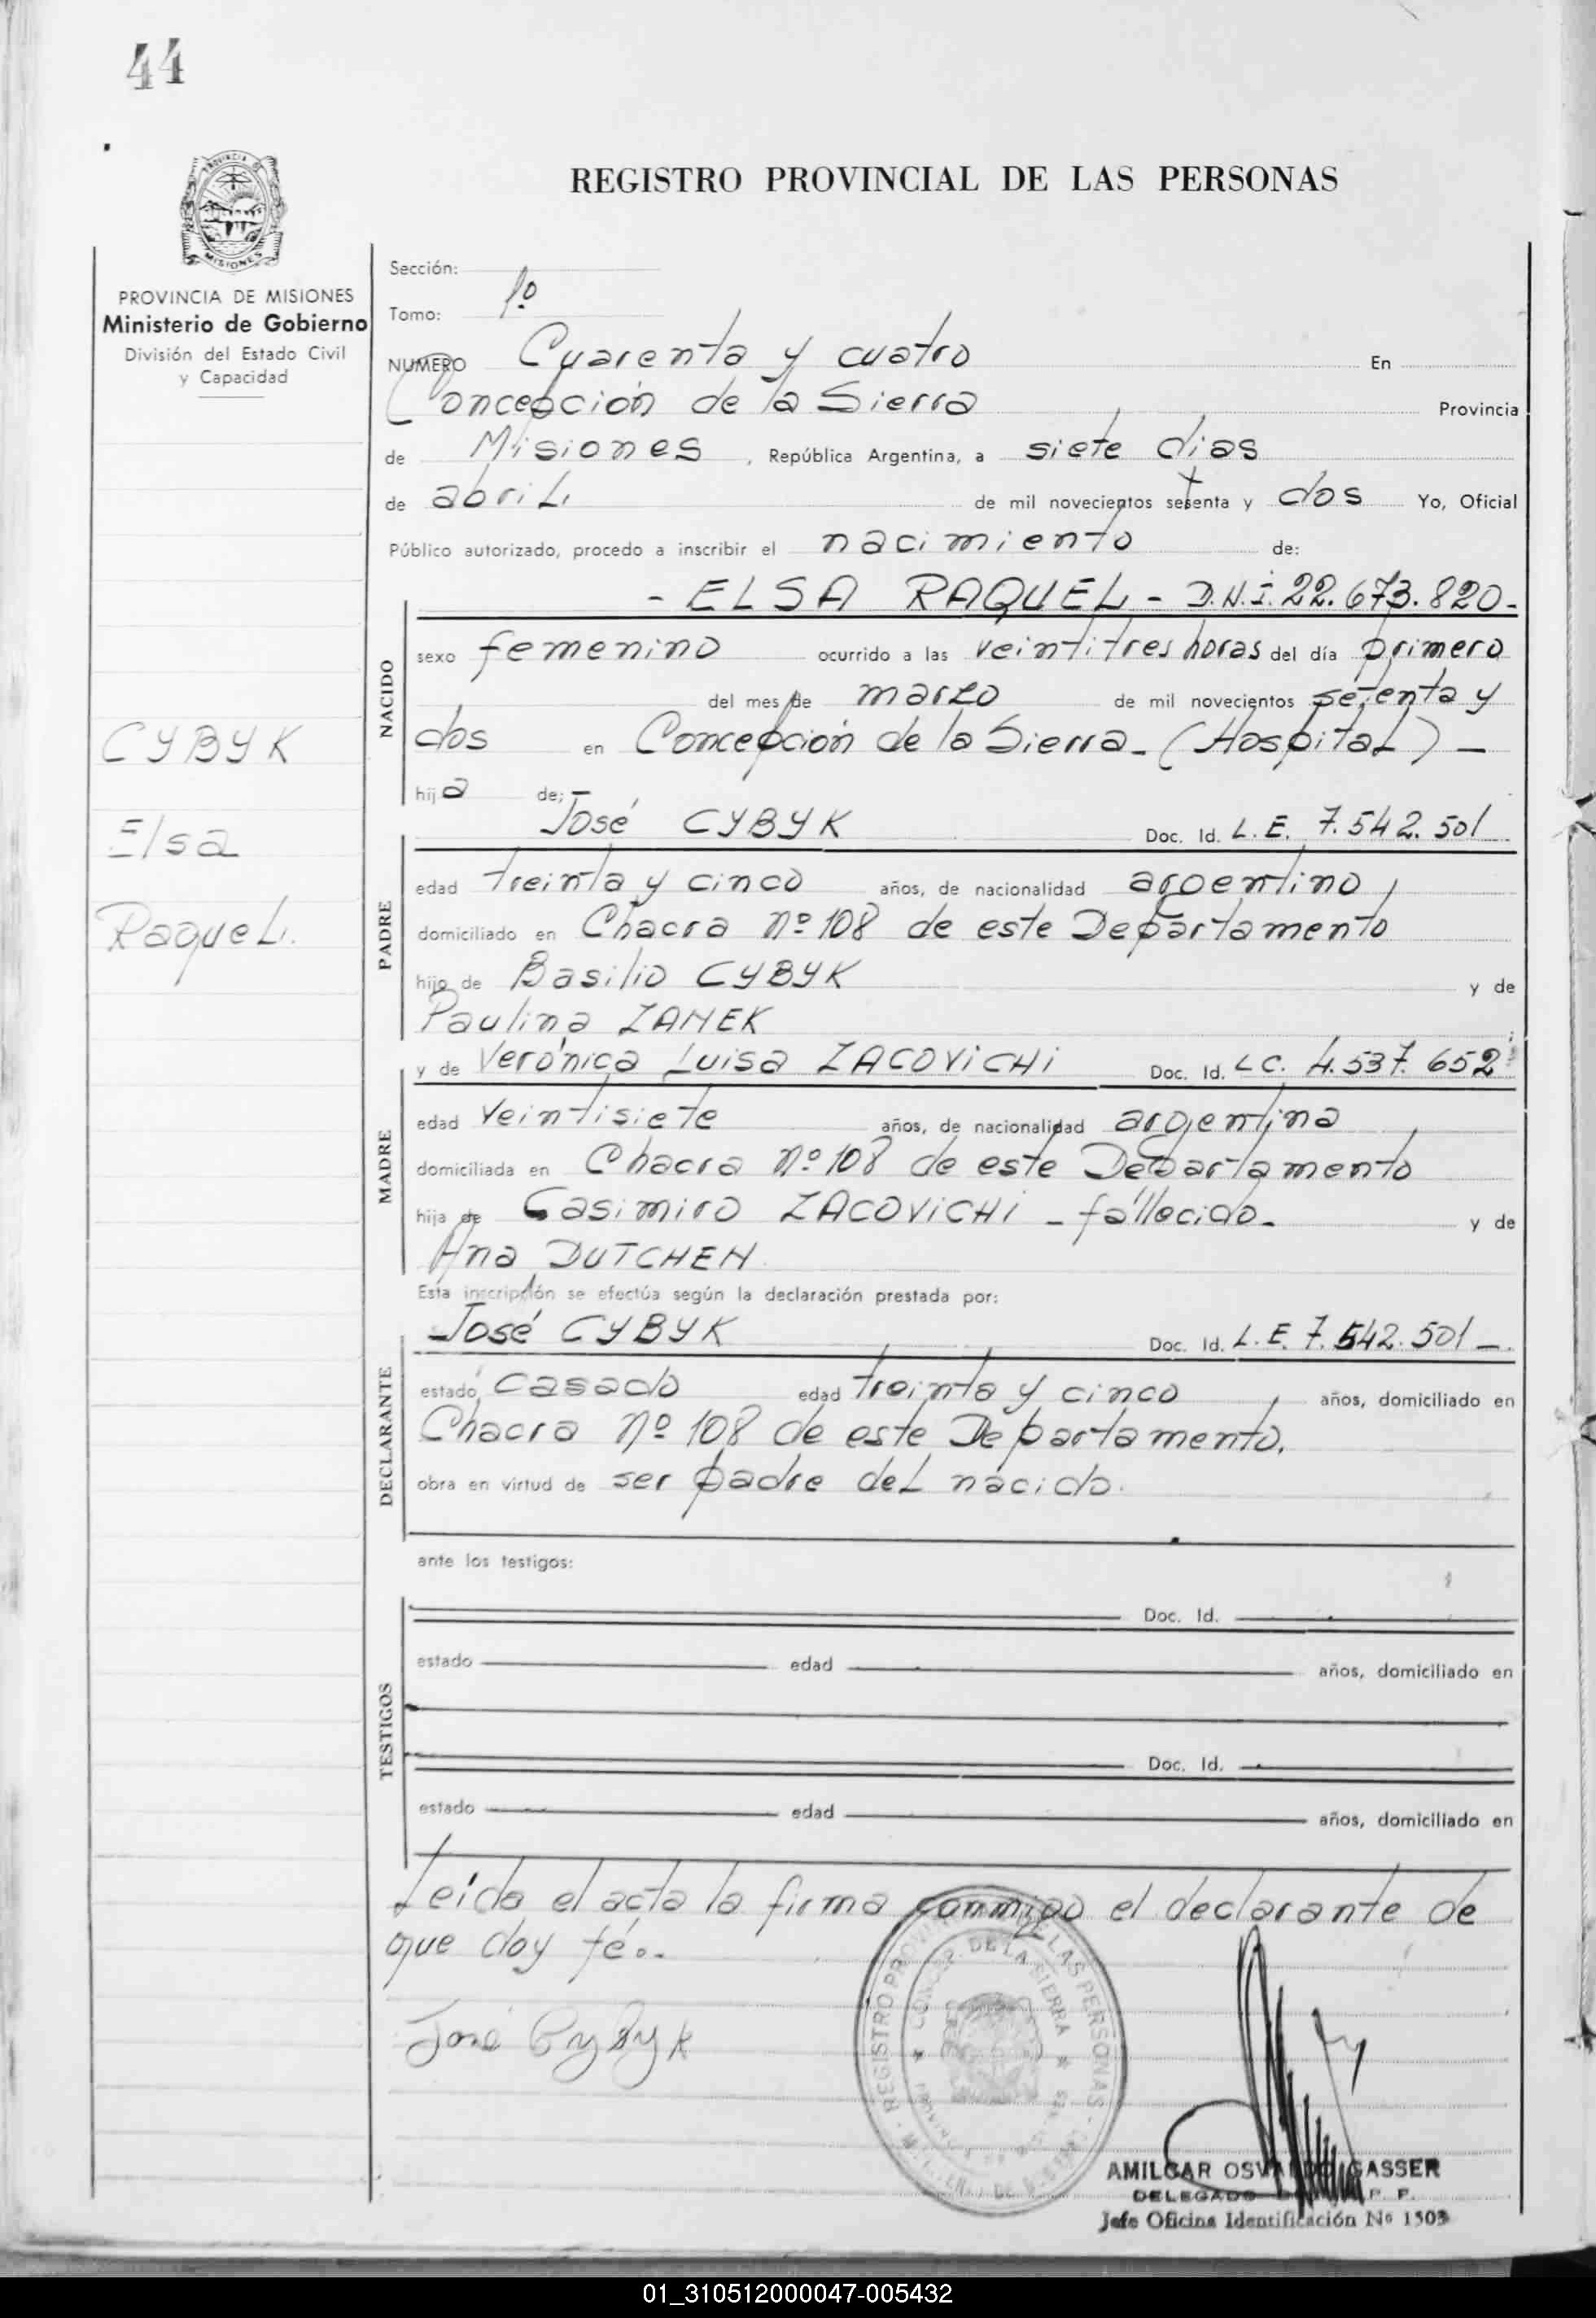 44
REGISTRO PROVINCIAL DE LAS PERSONAS
MISIONES
PROVINCIA DE MISIONES
Ministerio de Gobierno
División del Estado Civil
y Capacidad
CYBYK
Elsa
Raquel.
Sección:
Tomo: 1º
NUMERO Cuarenta y cuatro En
Concepción de la Sierra Provincia
de Misiones, República Argentina, a siete dias
de abril de mil novecientos setenta y dos Yo, Oficial
Público autorizado, procedo a inscribir el nacimiento de:
- ELSA RAQUEL - D.N.I. 22.673.820-
NACIDO
sexo femenino ocurrido a las veintitres horas del día primero
del mes de marzo de mil novecientos setenta y
dos en Concepción de la Sierra - (Hospital) -
hija de:
José CYBYK Doc. Id. L.E. 7.542.501
PADRE
edad treinta y cinco años, de nacionalidad argentino
domiciliado en Chacra Nº 108 de este Departamento
hijo de Basilio CYBYK y de
Paulina ZANEK
y de Verónica Luisa ZACOVICHI Doc. Id. L.C. 4.537.652
MADRE
edad veintisiete años, de nacionalidad argentina
domiciliada en Chacra Nº 108 de este Departamento
hija de Casimiro ZACOVICHI - fallecido - y de
Ana DUTCHEN
Esta inscripción se efectúa según la declaración prestada por:
José CYBYK Doc. Id. L.E. 7.542.501 -
DECLARANTE
estado casado edad treinta y cinco años, domiciliado en
Chacra Nº 108 de este Departamento.
obra en virtud de ser padre del nacido.
ante los testigos:
TESTIGOS
Doc. Id.
estado edad años, domiciliado en
Doc. Id.
estado edad años, domiciliado en
Leida el acta la firma conmigo el declarante de
que doy fé.-
José Cybyk
REGISTRO PROVINCIAL DE LAS PERSONAS
CONCEP. DE LA SIERRA
AMILCAR OSVALDO GASSER
DELEGADO P. F.
Jefe Oficina Identificación Nº 1503
01_310512000047-005432